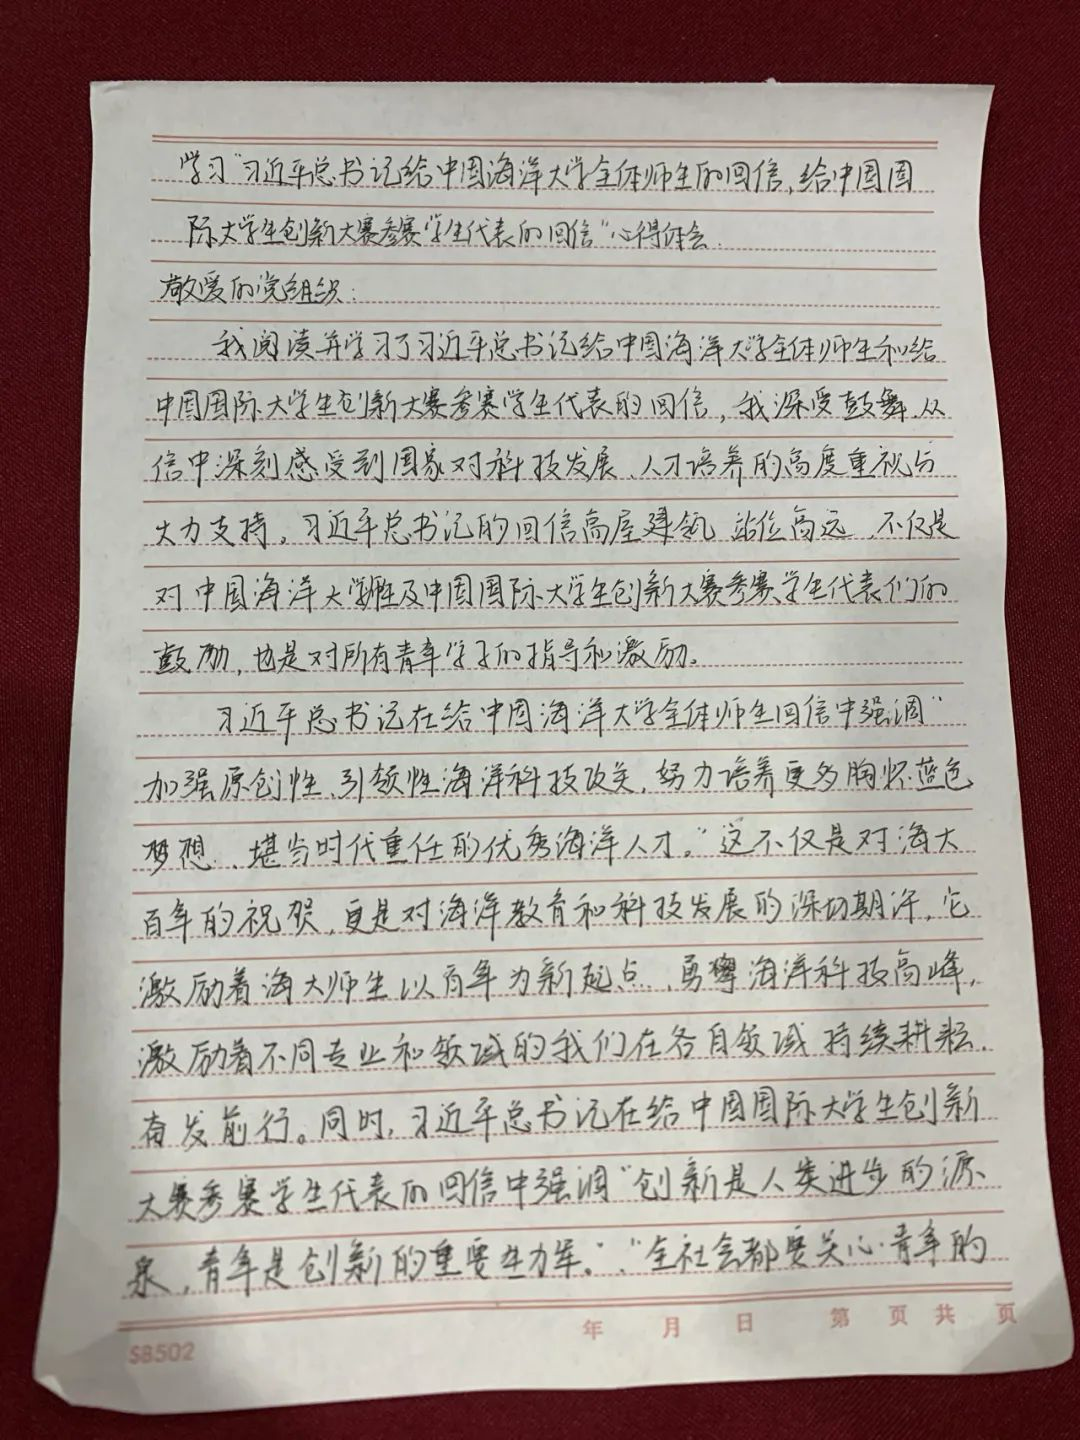 学习“习近平总书记给中国海洋大学全体师生的回信,给中国国
际大学生创新大赛参赛学生代表的回信”心得体会.
敬爱的党组织:
我阅读并学习了习近平总书记给中国海洋大学全体师生和给
中国国际大学生创新大赛参赛学生代表的回信,我深受鼓舞,从
信中深刻感受到国家对科技发展、人才培养的高度重视与
大力支持。习近平总书记的回信高屋建瓴,站位高远,不仅是
对中国海洋大学师生及中国国际大学生创新大赛参赛学生代表们的
鼓励,也是对所有青年学子的指导和激励。
习近平总书记在给中国海洋大学全体师生回信中强调“
加强原创性、引领性海洋科技攻关,努力培养更多胸怀蓝色
梦想、堪当时代重任的优秀海洋人才。”这不仅是对海大
百年的祝贺,更是对海洋教育和科技发展的深切期许,它
激励着海大师生以百年为新起点、勇攀海洋科技高峰,
激励着不同专业和领域的我们在各自领域持续耕耘,
奋发前行。同时,习近平总书记在给中国国际大学生创新
大赛参赛学生代表的回信中强调“创新是人类进步的源
泉,青年是创新的重要生力军。”、“全社会都要关心青年的
年 月 日 第 页 共 页
SB502